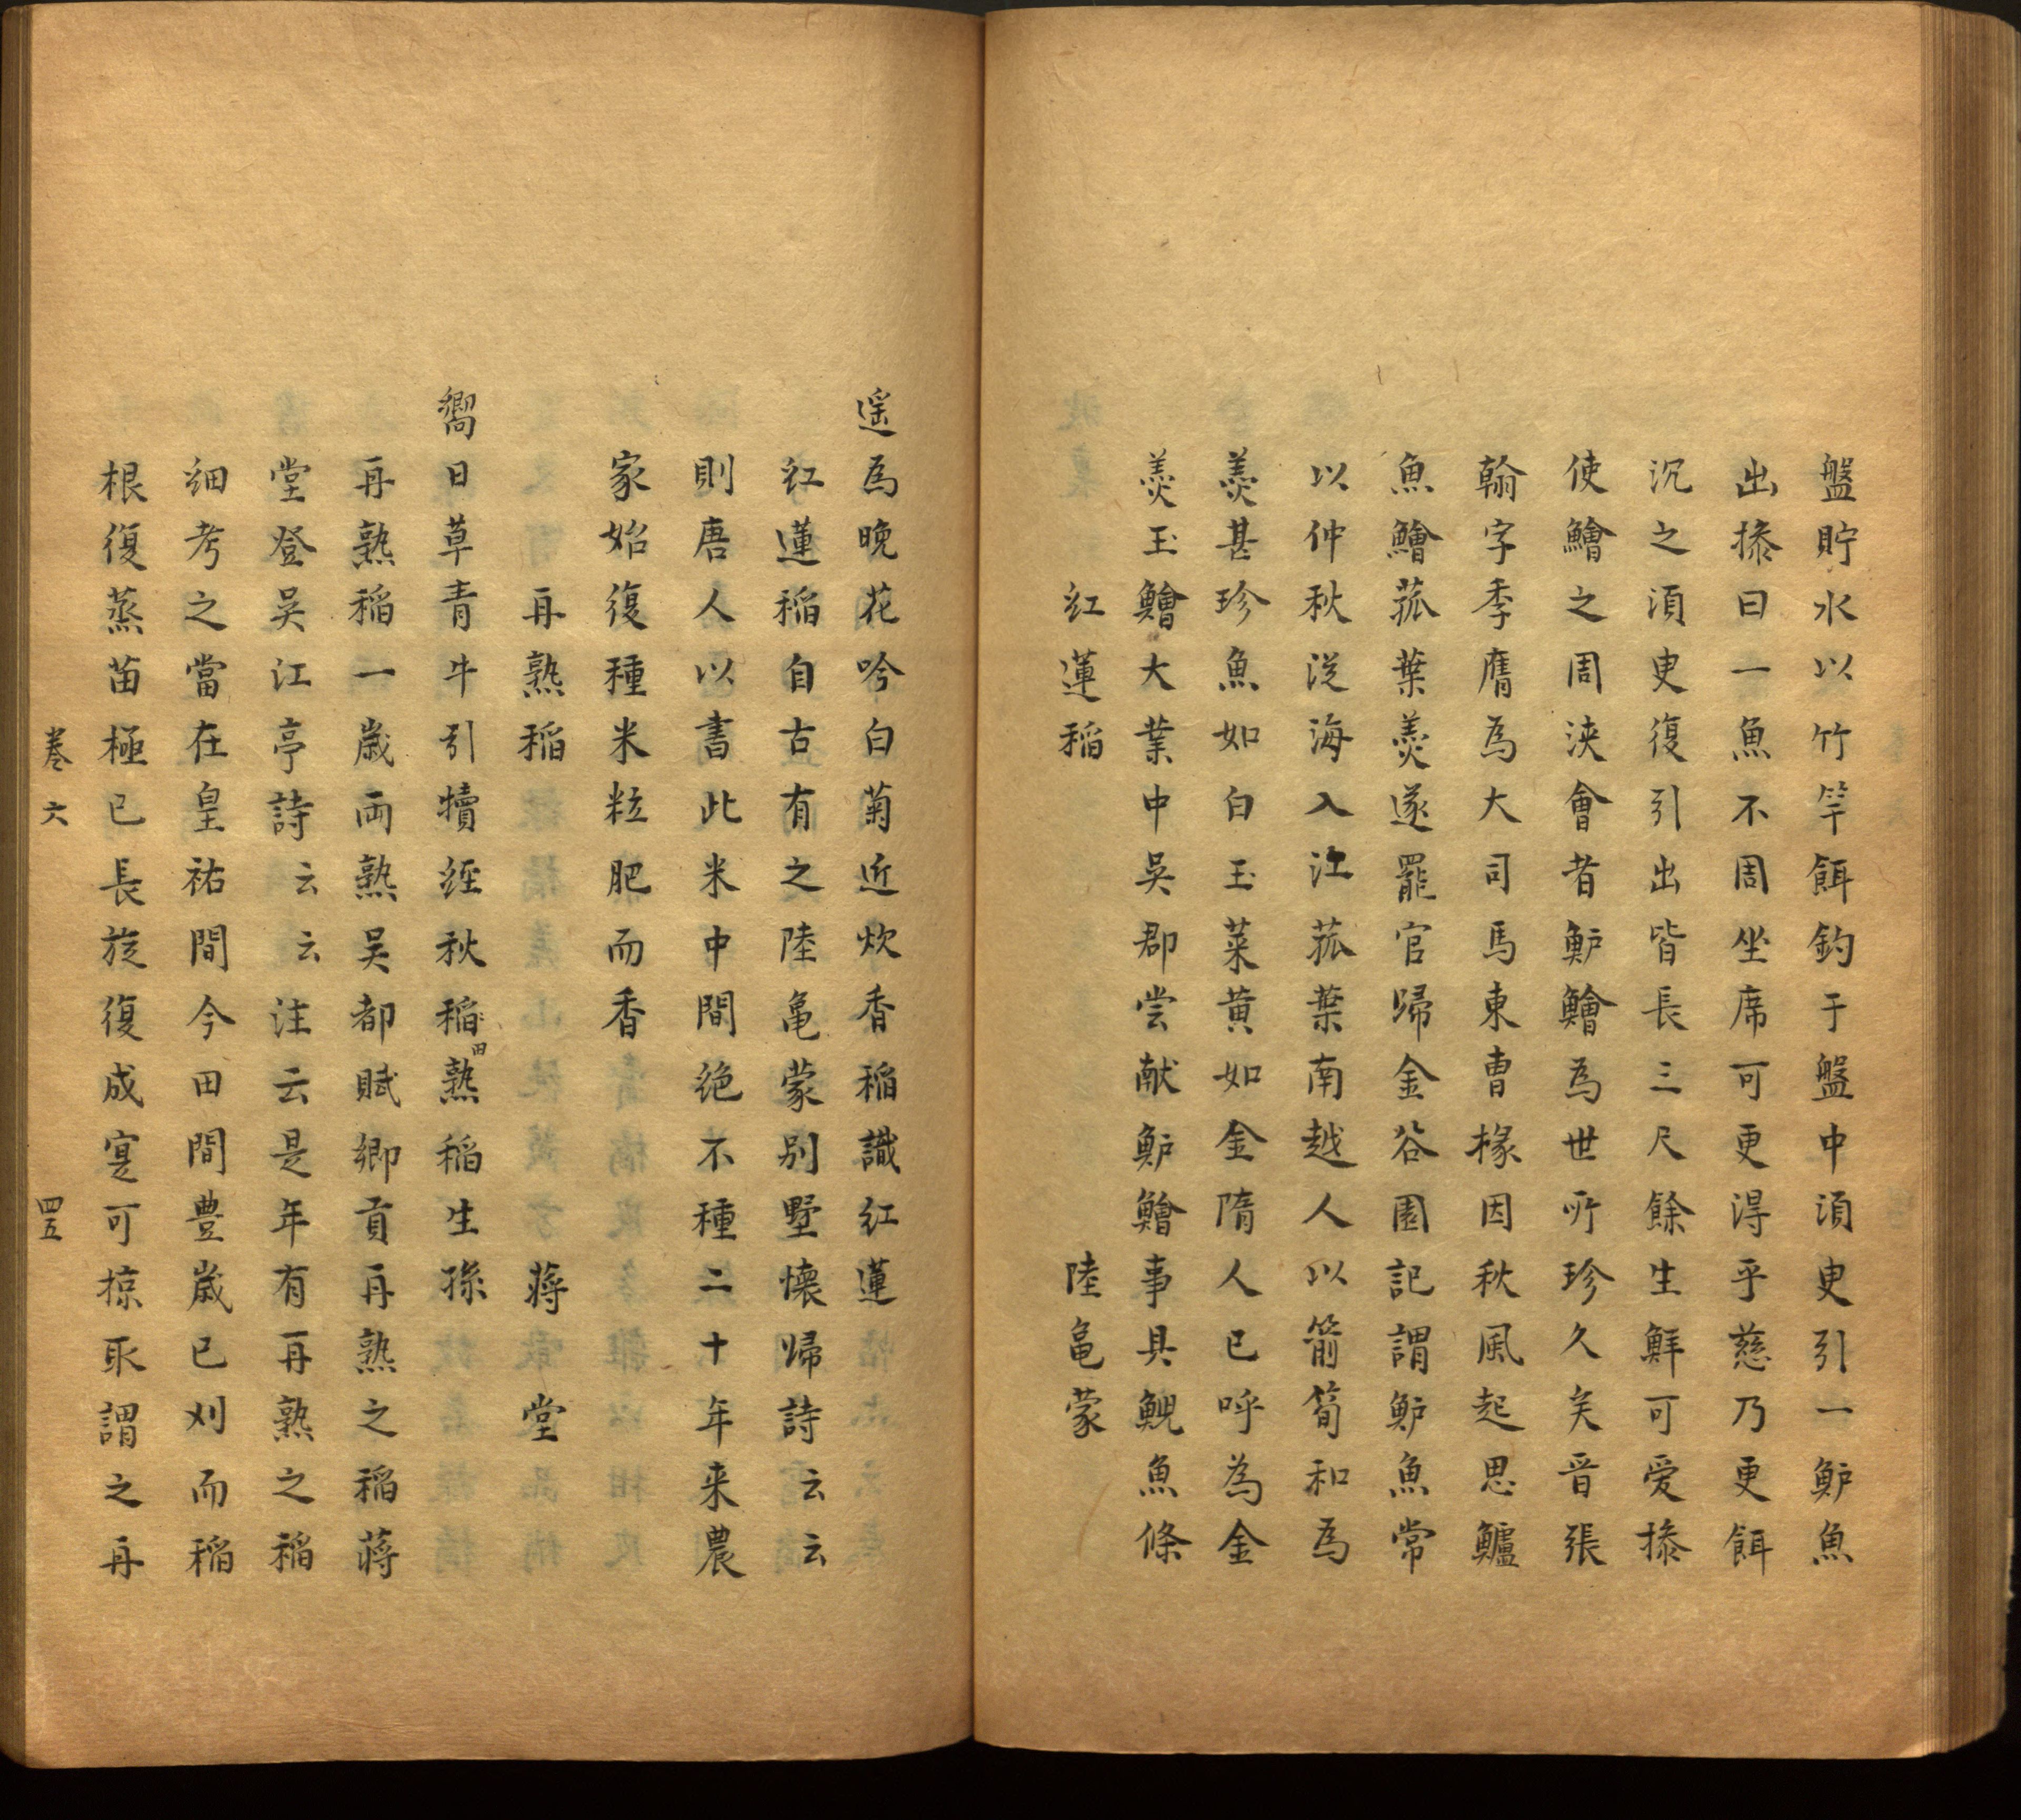 盤貯水以竹竿餌釣于盤中湏臾引一鲈魚
出操曰一魚不周坐席可更得乎慈乃更餌
沉之湏臾復引出皆長三尺餘生鮮可爱操
使鱠之周浹會者鲈鱠為世所珍久矣晉張
翰字季鷹為大司馬東曹椽因秋風起思鱸
魚鱠菰葉羮遂罷官歸金谷園記謂鲈魚常
以仲秋従海入江菰葉南越人以箭筍和為
羮甚珍魚如白玉菜黄如金隋人已呼為金
羮玉鱠大業中吳郡尝献鲈鱠事具鮸魚條
紅蓮稲　陸亀蒙
遥為晚花吟白菊近炊香稲識紅蓮
紅蓮稲自古有之陸亀蒙别墅懐歸詩云云
則唐人以書此米中間絶不種二十年来農
家始復種米粒肥而香
再熟稲　蒋堂
嚮日草青牛引犢経秋稲田熟稲生孫
再熟稲一歲兩熟吴都賦鄉貢再熟之稲蒋
堂登吴江亭詩云云注云是年有再熟之稲
細考之當在皇祐間今田間豊歲已刈而稲
根復蒸苗極已長旋復成寔可掠取謂之再
卷六　四五